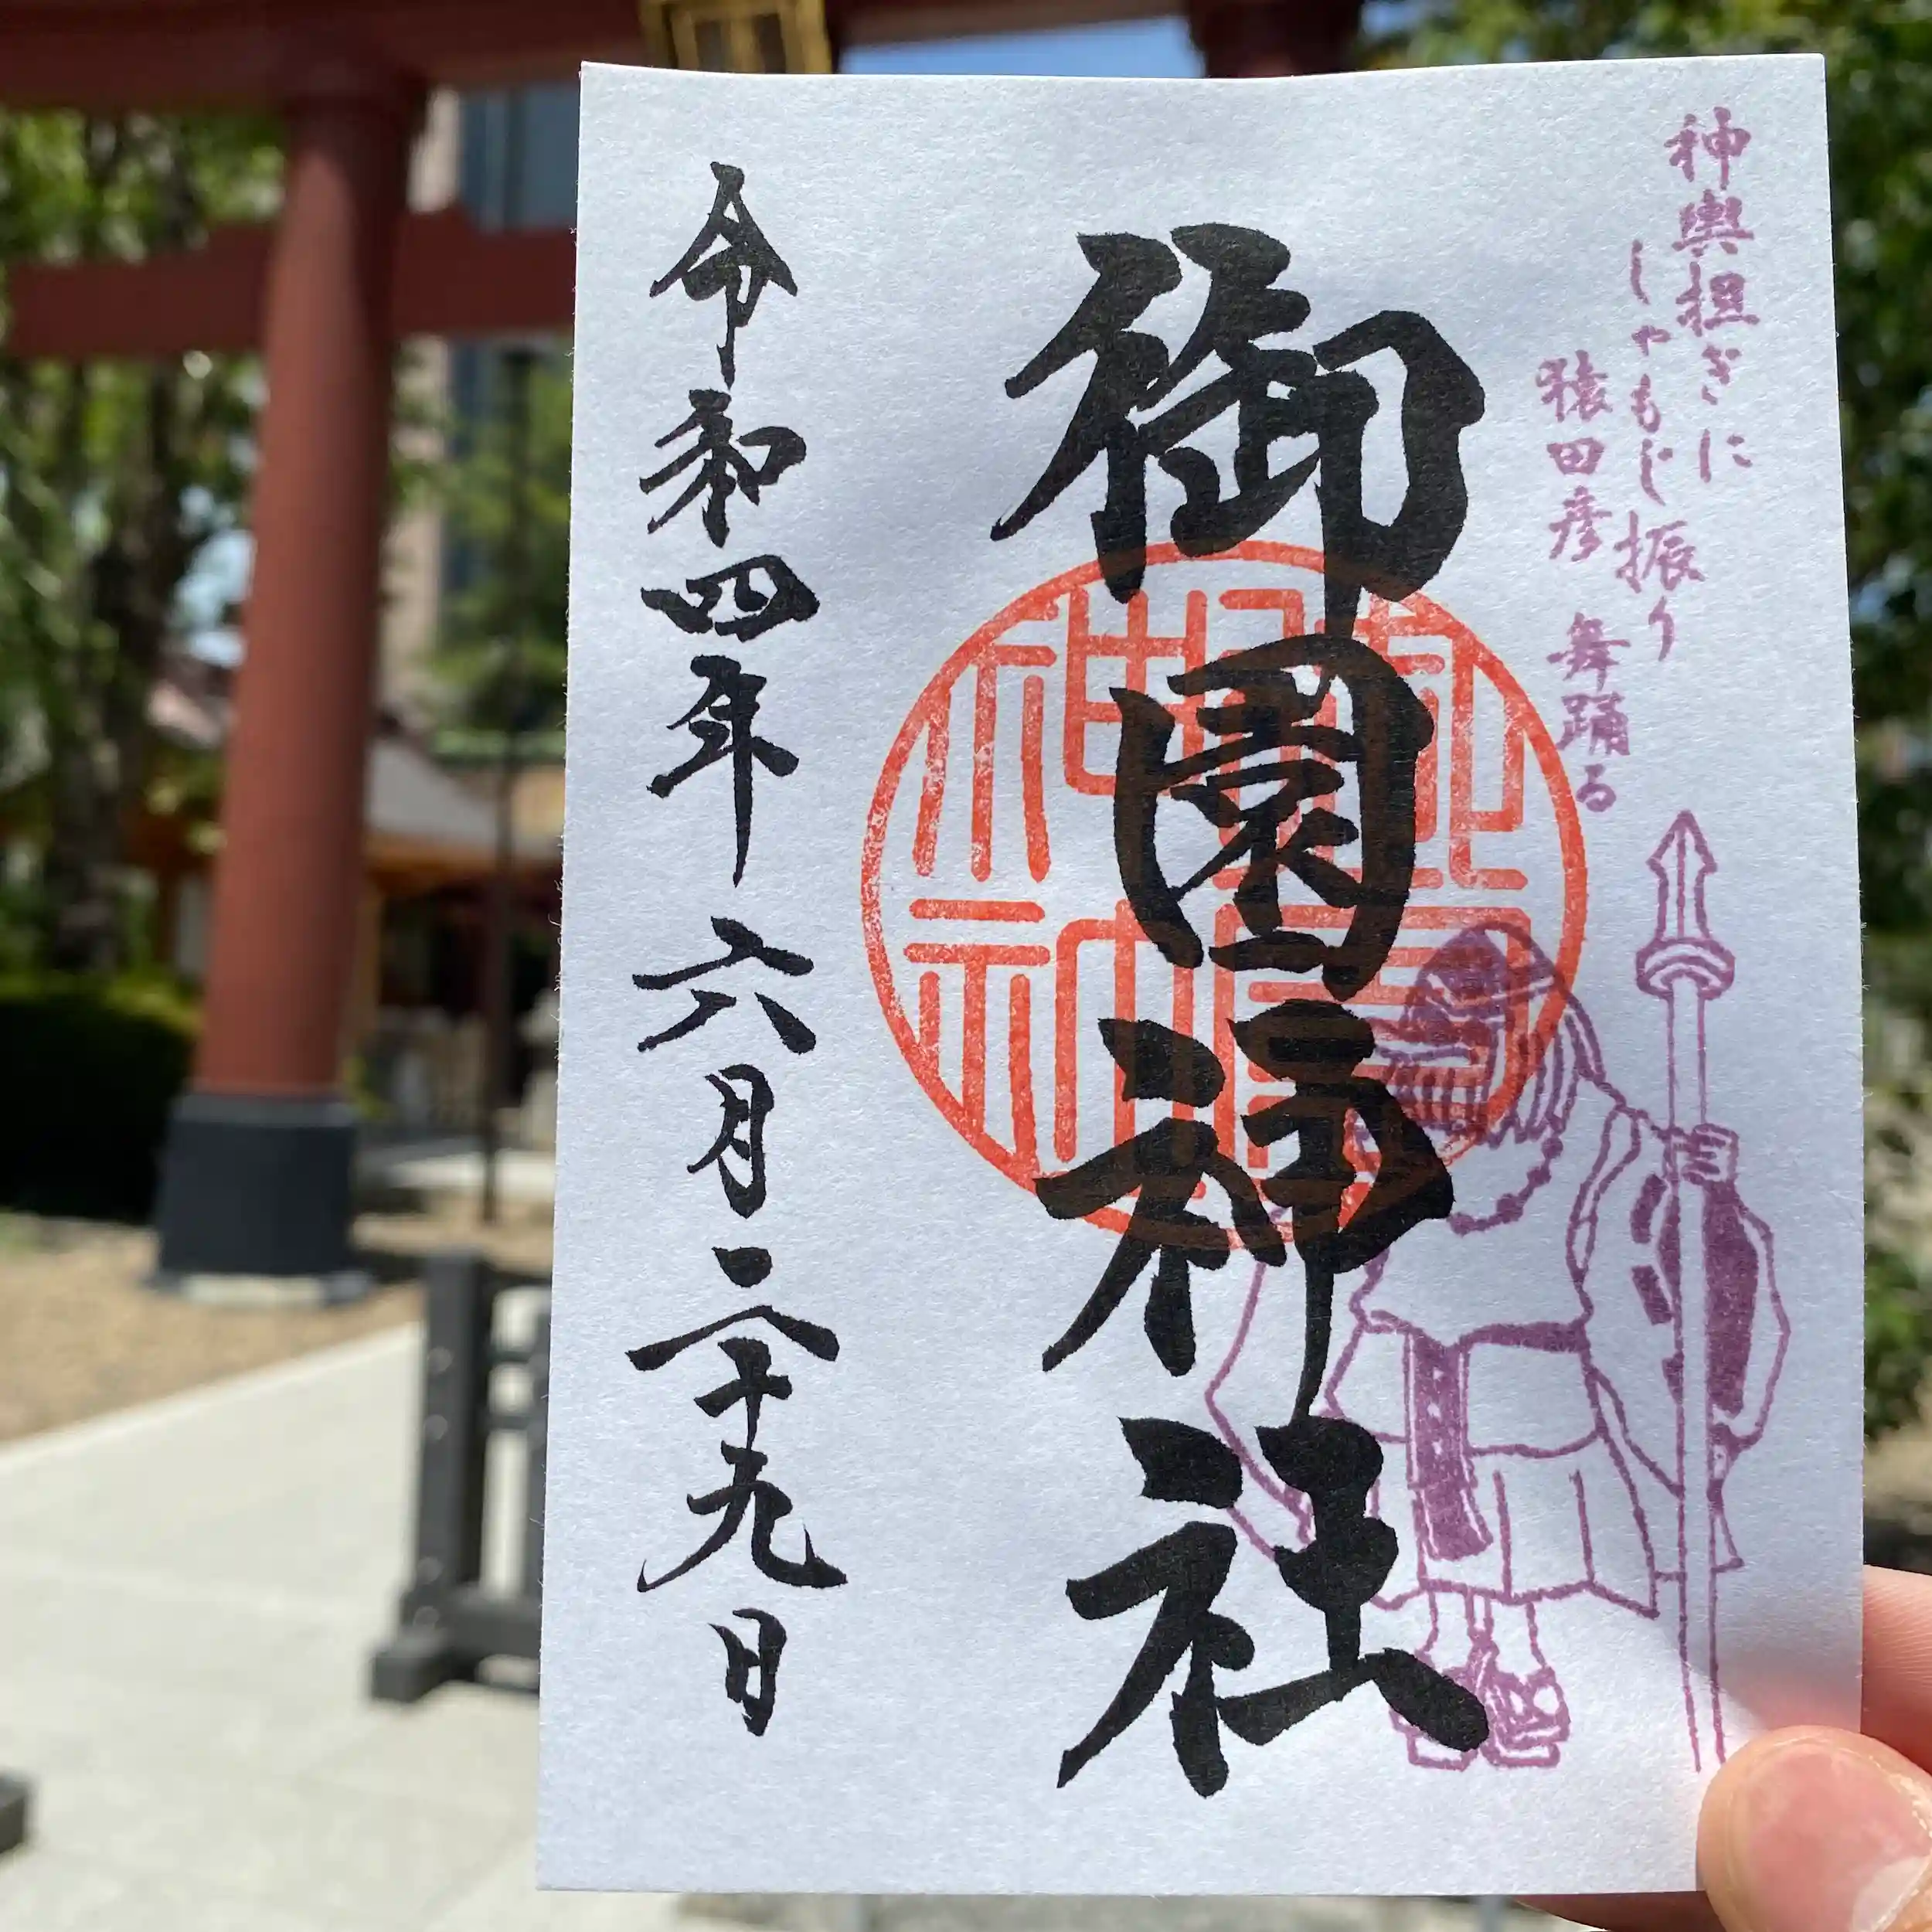 神輿担ぎに
しゃもじ振り
猿田彦 舞踊る
御園神社
令和四年 六月二十九日